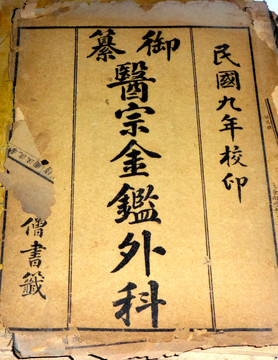 民國九年校印
御纂
醫宗金鑑外科
僧書籤